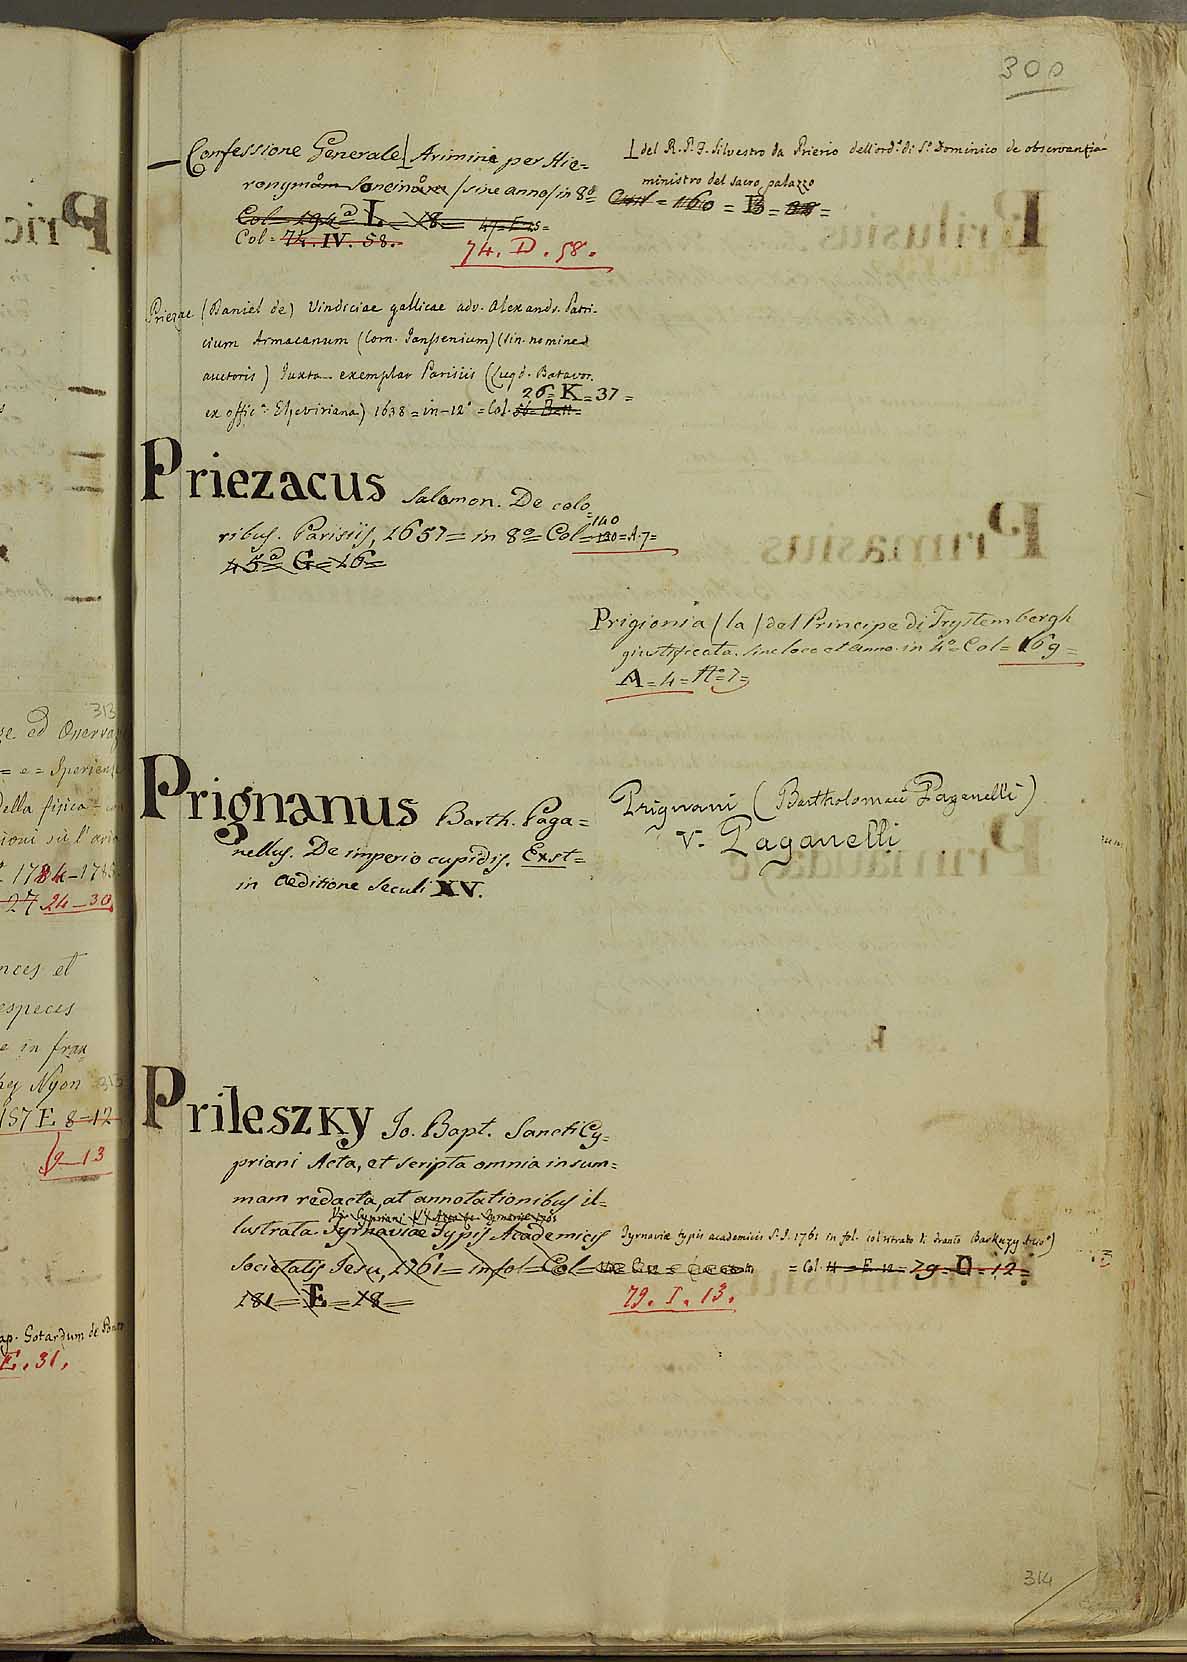 300
— Confessione Generale ⊥ Arimini per Hie=
ronymum Soncinum / sine anno / in 8º =
Col = 194ª L = 18 = 47 = E 25 =
Col = 74. IV. 58.
74. D. 58.
⊥ del R. P. F. Silvestro da Prierio dell'ord.e di S.º Dominico de observantia
ministro del sacro palazzo
= 160 = B =
Priezac (Daniel de) Vindiciae gallicae adv. Alexandr. Patri-
cium Armacanum (Corn. Janssenium) (sin. nomine
auctoris) Juxta exemplar Parisiis (Lugd. Batavor.
26 = K = 37 =
ex offic.ª Elzeviriana) 1638 = in-12º = Col.
Priezacus Salomon. De colo
ribus. Parisiis, 1657 = in 8º = Col = 140 = A. 7 =
45ª = G = 16 =
Prigionia / la / del Principe di Trystembergh
giustificata. sine loco et anno. in 4º = Col = 169 =
A = 4 = Nº = 7 =
Prignanus Barth. Paga=
nellus. De imperio cupidis. Exst=
in aeditione seculi XV.
Prignani (Bartholomaei Paganelli)
v. Paganelli
Prileszky Jo. Bapt. Sancti Cy=
priani Acta, et scripta omnia in sum=
mam redacta, at annotationibus il=
lustrata. Tyrnaviae Typis Academicis
Societatis Jesu, 1761 = in fol = Col =
181 = E = 18 =
Tyrnaviae typis academicis S. J. 1761 in fol.
= Col. 11 = E. 12 = 79. D = 12 =
79. I. 13.
314
313
ge ed Onerva
= e = Sperien
della fisica =
ioni sù l'aria
1784-1785
27 24-30
nces et
especes
e in fran
Nyon 313
157 E 8 = 12
9-13
ap. Gotardum de Ponte
E. 31.